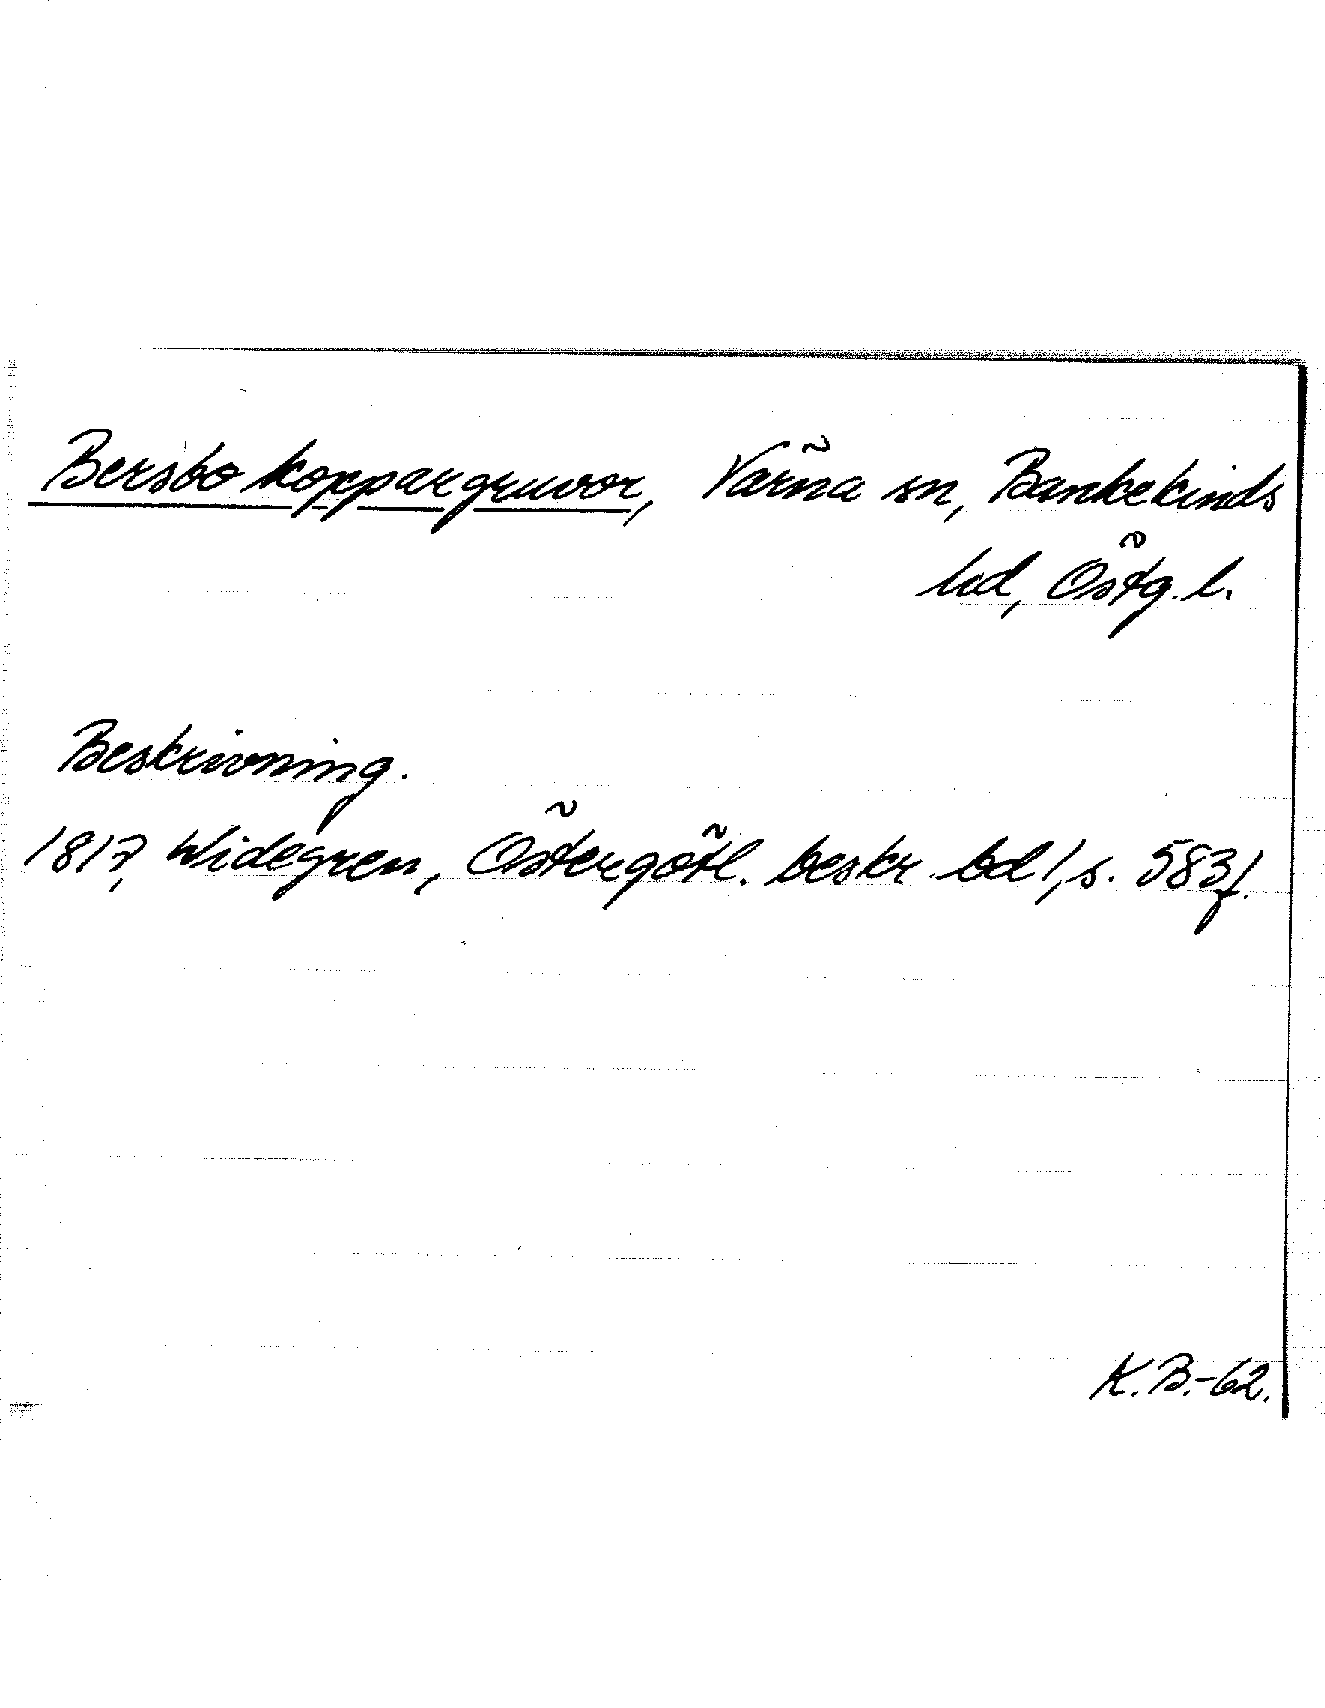 Bersbo koppargruvor, Värna sn, Bankekinds
hd, Östg. l.
Beskrivning.
1817, Widegren, Östergötl. beskr. bd 1, s. 583 f.
K.B.-62.